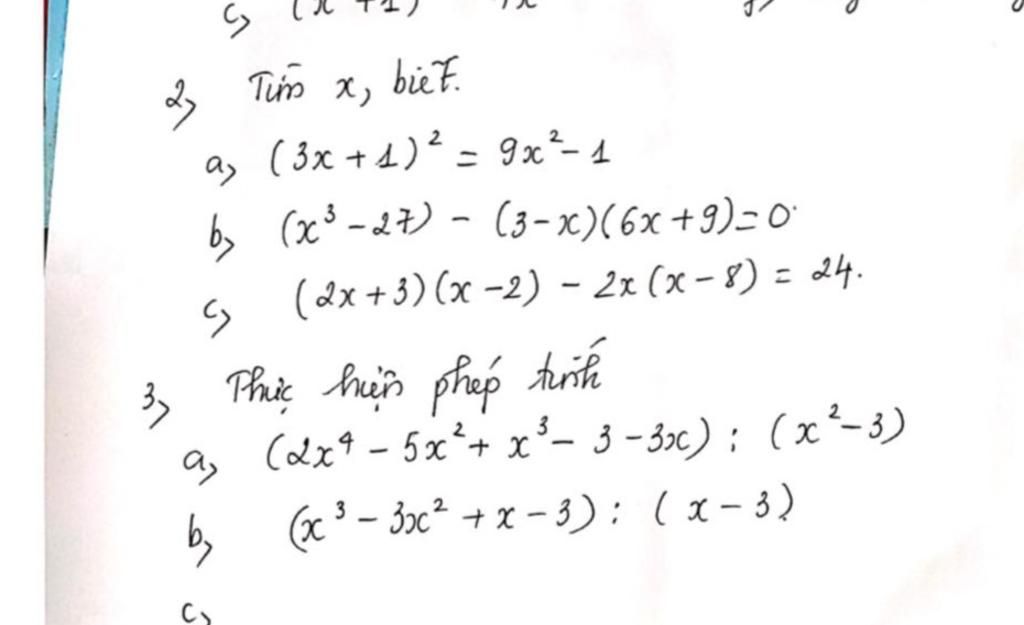 2, Tìm x, biết.
a, (3x + 1)² = 9x² - 1
b, (x³ - 27) - (3 - x)(6x + 9) = 0
c, (2x + 3)(x - 2) - 2x(x - 8) = 24.
3, Thực hiện phép tính
a, (2x⁴ - 5x² + x³ - 3 - 3x) : (x² - 3)
b, (x³ - 3x² + x - 3) : (x - 3)
c,